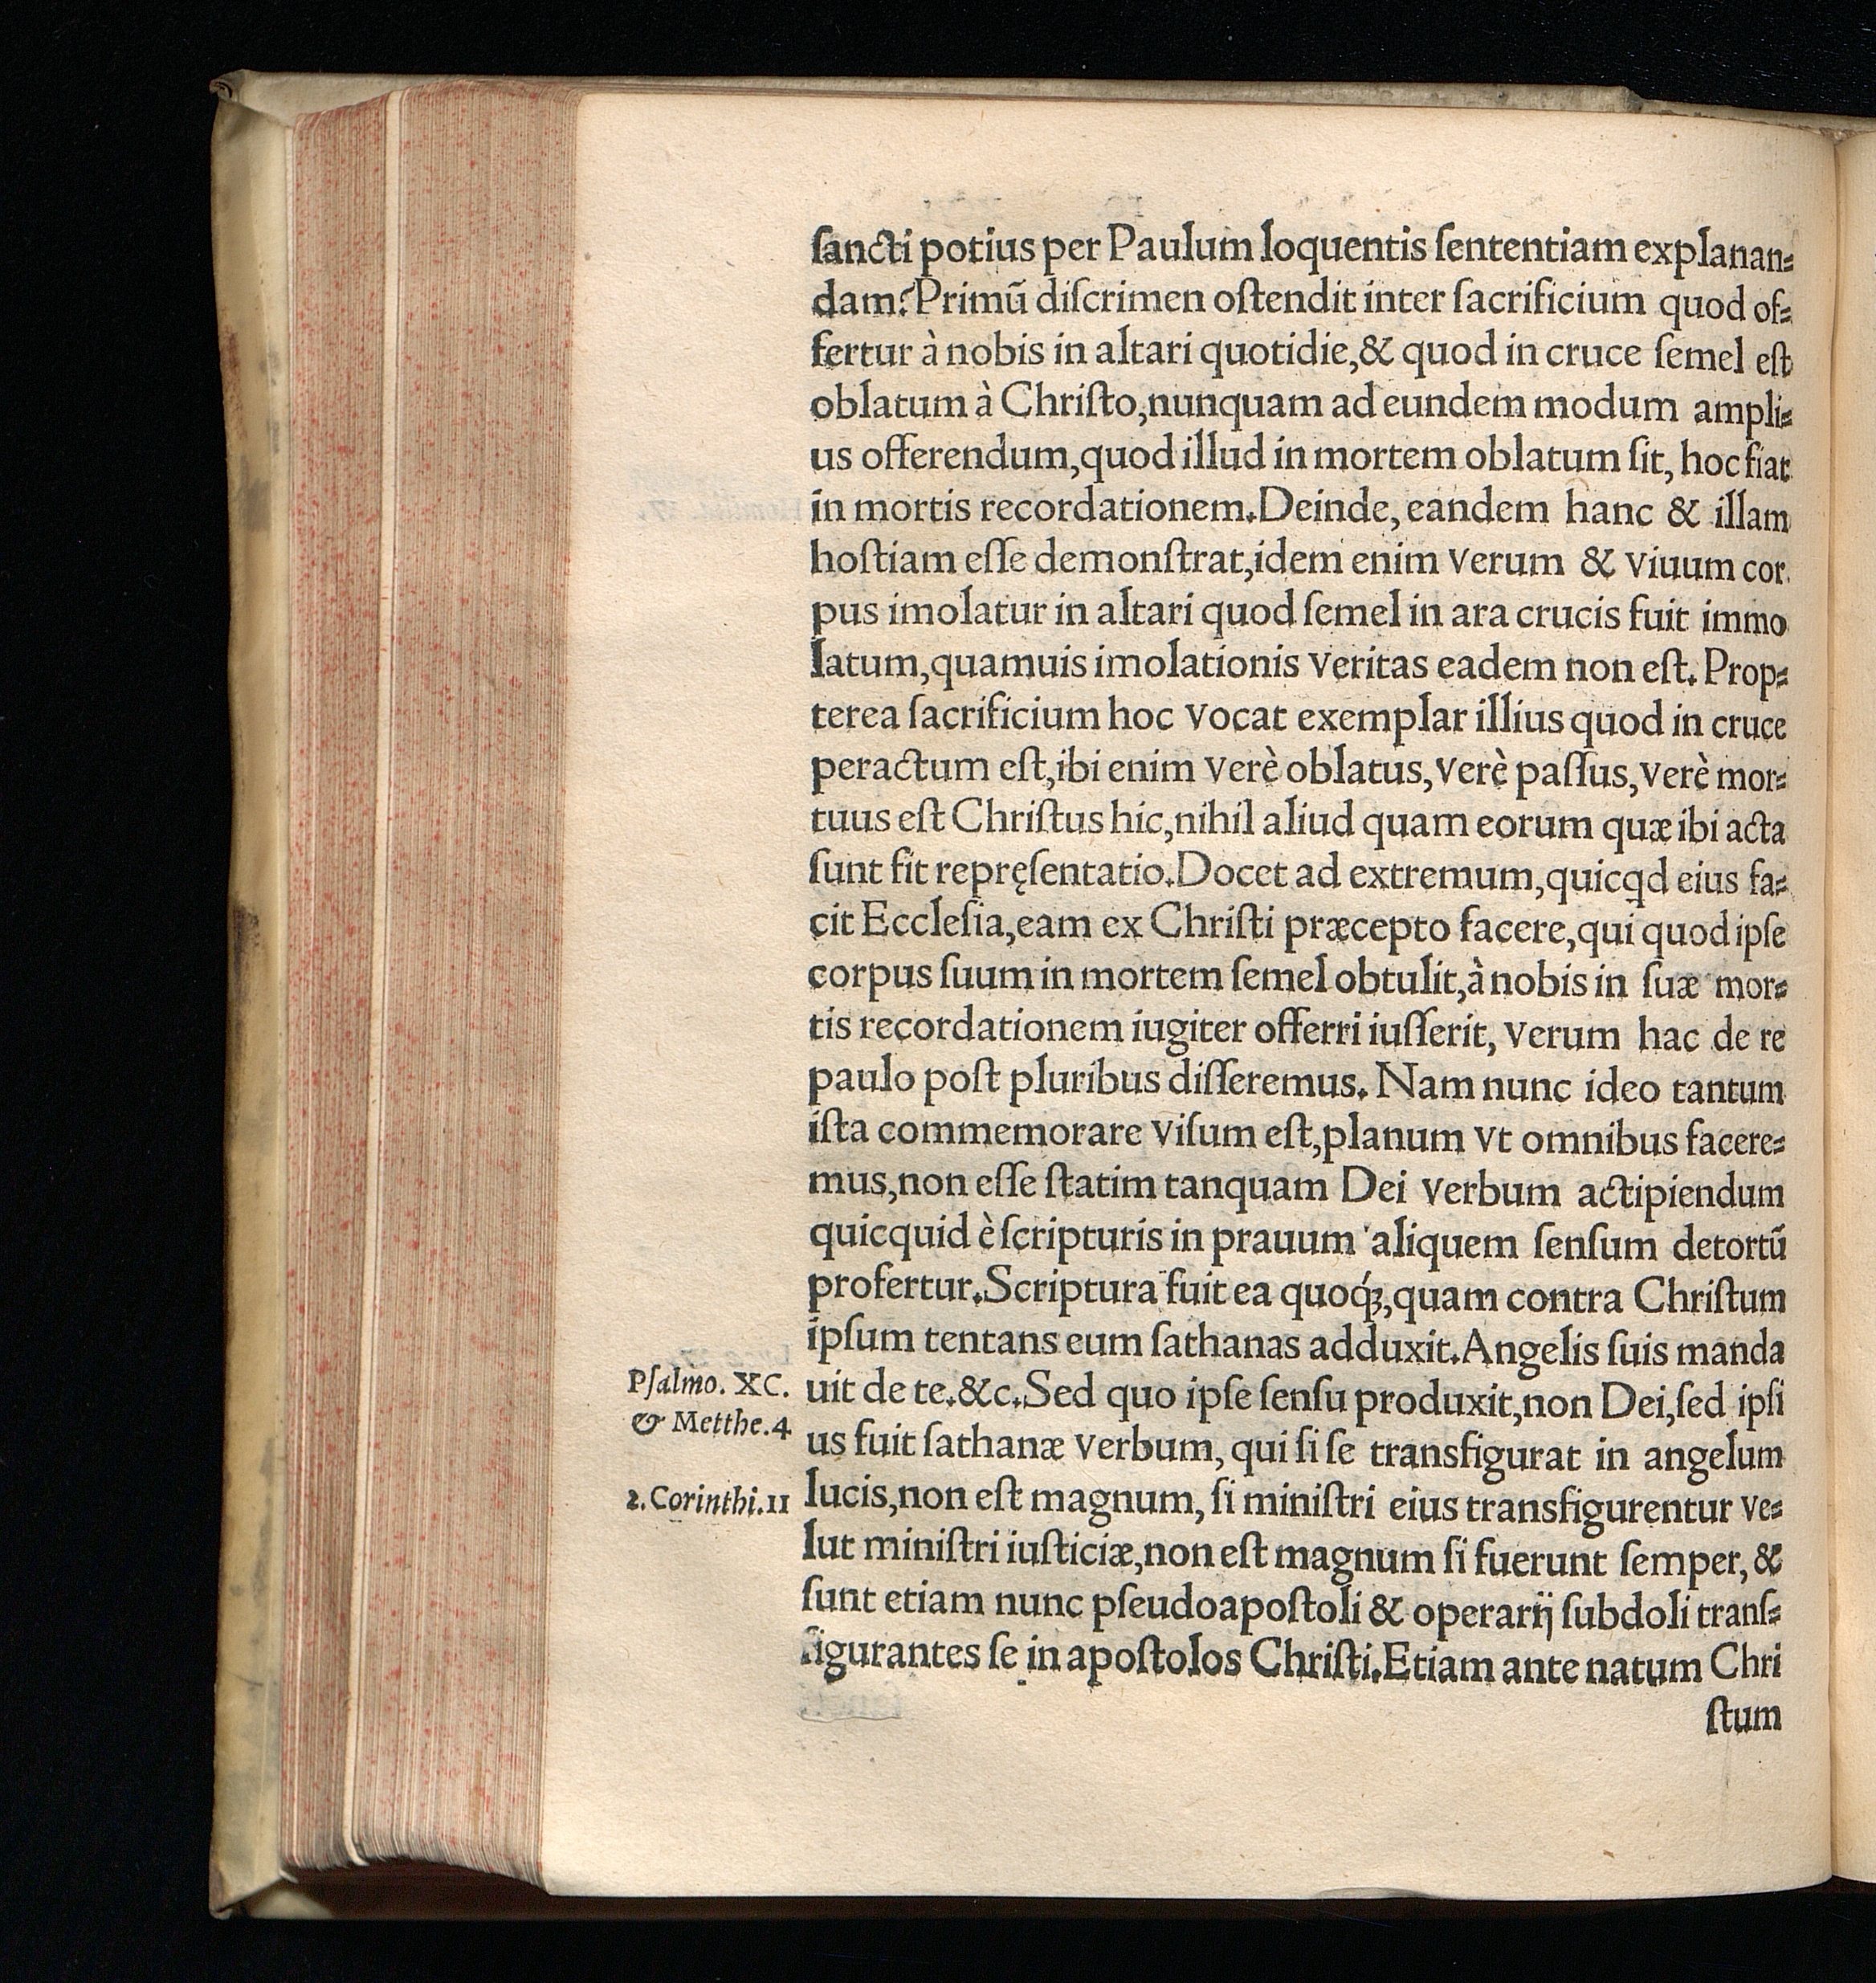 ſancti potius per Paulum loquentis ſententiam explanan=
dam? Primū diſcrimen oſtendit inter ſacrificium quod of=
fertur à nobis in altari quotidie,& quod in cruce ſemel eſt
oblatum à Chriſto,nunquam ad eundem modum ampli=
us offerendum,quod illud in mortem oblatum ſit, hoc fiat
in mortis recordationem.Deinde, eandem hanc & illam
hoſtiam eſſe demonſtrat,idem enim verum & viuum cor
pus imolatur in altari quod ſemel in ara crucis fuit immo
latum,quamuis imolationis veritas eadem non eſt. Prop=
terea ſacrificium hoc vocat exemplar illius quod in cruce
peractum eſt,ibi enim verè oblatus,verè paſſus,verè mor=
tuus eſt Chriſtus hic,nihil aliud quam eorum quæ ibi acta
ſunt fit repręſentatio.Docet ad extremum,quicqd eius fa=
cit Eccleſia,eam ex Chriſti præcepto facere,qui quod ipſe
corpus ſuum in mortem ſemel obtulit,à nobis in ſuæ mor=
tis recordationem iugiter offerri iuſſerit, verum hac de re
paulo poſt pluribus diſſeremus. Nam nunc ideo tantum
iſta commemorare viſum eſt,planum vt omnibus facere=
mus,non eſſe ſtatim tanquam Dei verbum actipiendum
quicquid è ſcripturis in prauum aliquem ſenſum detortū
profertur.Scriptura fuit ea quoq́ꝫ,quam contra Chriſtum
ipſum tentans eum ſathanas adduxit.Angelis ſuis manda
Pſalmo. XC.
uit de te.&c.Sed quo ipſe ſenſu produxit,non Dei,ſed ipſi
& Metthe.4
us fuit ſathanæ verbum, qui ſi ſe transfigurat in angelum
2.Corinthi.11
lucis,non eſt magnum, ſi miniſtri eius transfigurentur ve=
lut miniſtri iuſticiæ,non eſt magnum ſi fuerunt ſemper, &
ſunt etiam nunc pſeudoapoſtoli & operarij ſubdoli tranſ=
figurantes ſe in apoſtolos Chriſti.Etiam ante natum Chri
ſtum